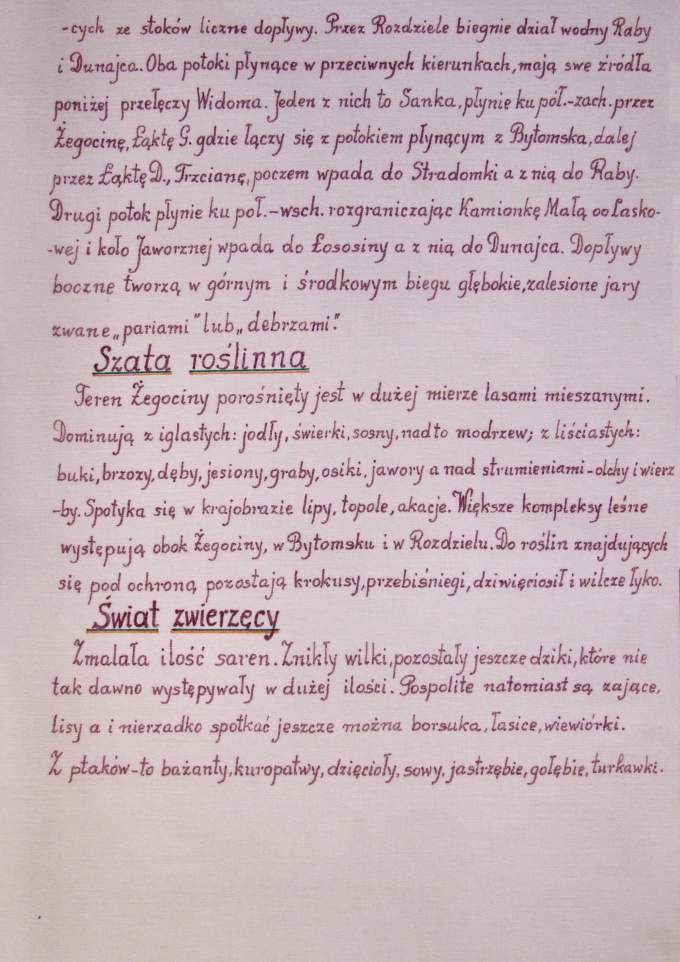 -cych ze stoków liczne dopływy. Przez Rozdziele biegnie dział wodny Raby
i Dunajca. Oba potoki płynące w przeciwnych kierunkach, mają swe źródła
poniżej przełęczy Widoma. Jeden z nich to Sanka, płynie ku półł.-zach. przez
Żegocinę, Łąktę G. gdzie łączy się z potokiem płynącym z Bytomska, dalej
przez Łąktę D., Trzcianę, poczem wpada do Stradomki a z nią do Raby.
Drugi potok płynie ku poł.-wsch. rozgraniczając Kamionkę Małą od Lasko-
-wej i koło Jaworznej wpada do Łososiny a z nią do Dunajca. Dopływy
boczne tworzą w górnym i środkowym biegu głębokie, zalesione jary
zwane „pariami" lub „debrzami".
Szata roślinna
Teren Żegociny porośnięty jest w dużej mierze lasami mieszanymi.
Dominują z iglastych: jodły, świerki, sosny, nadto modrzew; z liściastych:
buki, brzozy, dęby, jesiony, graby, osiki, jawory a nad strumieniami-olchy i wierz
-by. Spotyka się w krajobrazie lipy, topole, akacje. Większe kompleksy leśne
występują obok Żegociny, w Bytomsku i w Rozdzielu. Do roślin znajdujących
się pod ochroną pozostają krokusy, przebiśniegi, dziwięciosił i wilcze łyko.
Świat zwierzęcy
Zmalała ilość saren. Znikły wilki, pozostały jeszcze dziki, które nie
tak dawno występywały w dużej ilości. Pospolite natomiast są zające,
lisy a i nierzadko spotkać jeszcze można borsuka, łasice, wiewiórki.
Z ptaków-to bażanty, kuropatwy, dzięcioły, sowy, jastrzębie, gołębie, turkawki.